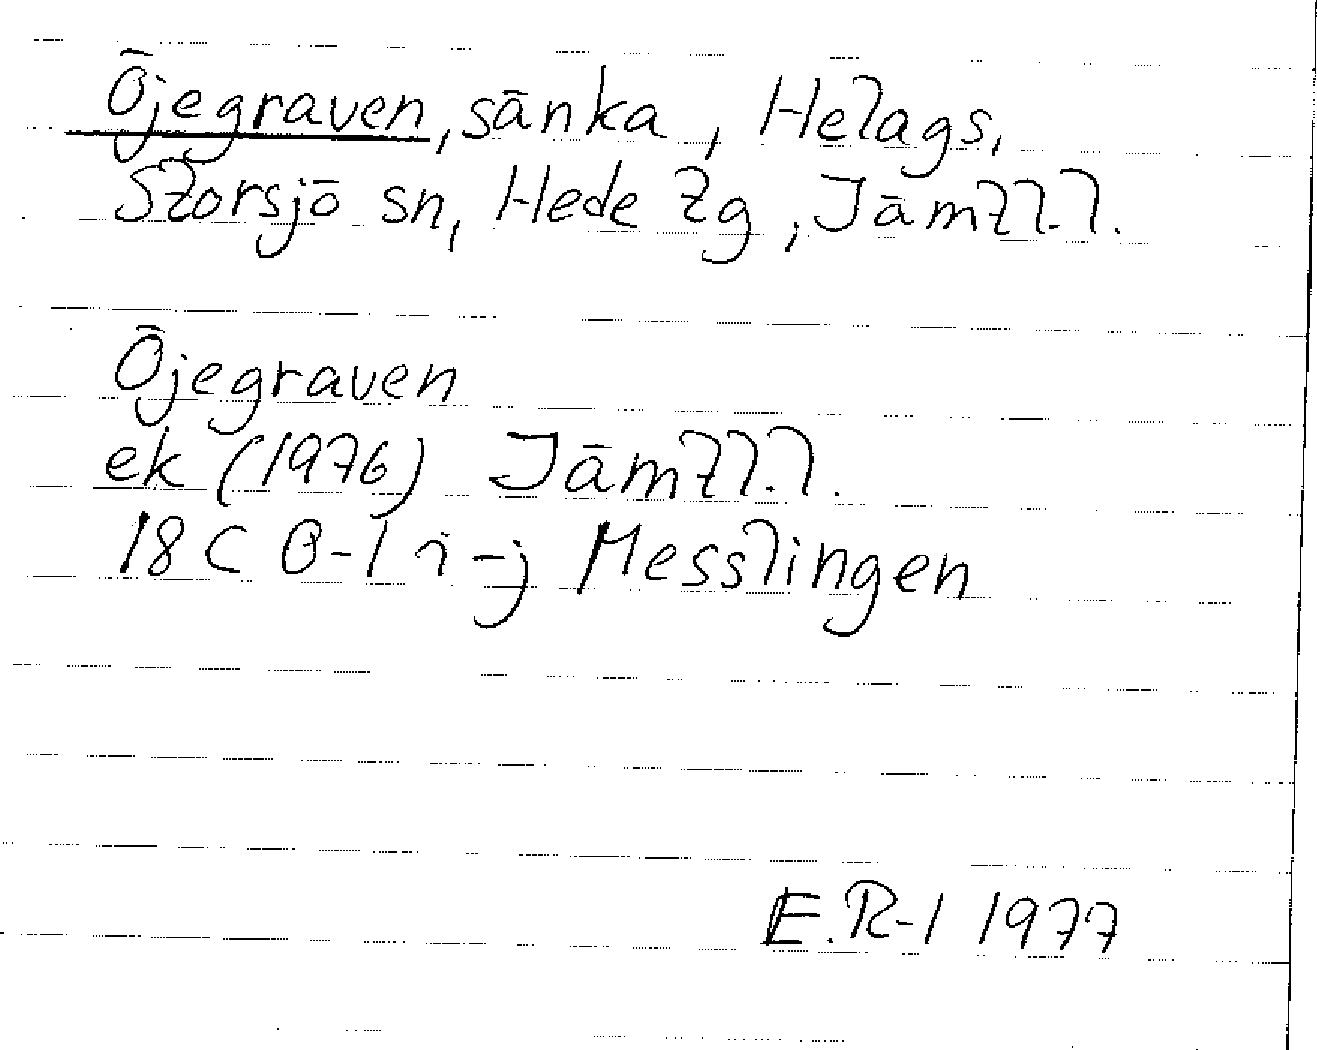 Öjegraven, sänka, Helags,
Storsjö sn, Hede tg, Jämtl.l.
Öjegraven
ek (1976) Jämtl.l.
18 C 0-1 i-j Messlingen
E.R-l 1977